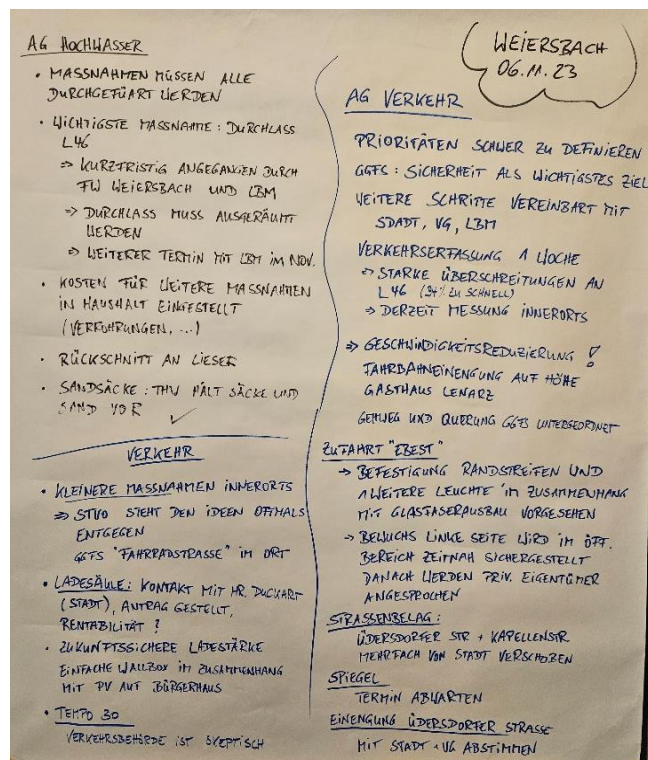 AG HOCHWASSER
• MASSNAHMEN MÜSSEN ALLE
DURCHGEFÜART WERDEN
• WICHTIGSTE MASSNAHME: DURCHLASS
L46
⇒ KURZFRISTIG ANGEGANGEN DURCH
FW WEIERSBACH UND LBM
⇒ DURCHLASS MUSS AUSGERÄUMT
WERDEN
⇒ WEITERER TERMIN MIT LBM IM NOV.
• KOSTEN FÜR WEITERE MASSNAHMEN
IN HAUSHALT EINGESTELLT
(VERROHRUNGEN, ...)
• RÜCKSCHNITT AN LIESER
• SANDSÄCKE: THW HÄLT SÄCKE UND
SAND VOR ✓
VERKEHR
• KLEINERE MASSNAHMEN INNERORTS
⇒ STVO STEHT DEN IDEEN OFTMALS
ENTGEGEN
GGFS "FAHRRADSTRASSE" IM ORT
• LADESÄULE: KONTAKT MIT HR. DUCKART
(STADT), ANTRAG GESTELLT,
RENTABILITÄT ?
• ZUKUNFTSSICHERE LADESTÄRKE
EINFACHE WALLBOX IM ZUSAMMENHANG
MIT PV AUF BÜRGERHAUS
• TEMPO 30
VERKEHRSBEHÖRDE IST SKEPTISCH
WEIERSBACH
06.11.23
AG VERKEHR
PRIORITÄTEN SCHWER ZU DEFINIEREN
GGFS: SICHERHEIT ALS WICHTIGSTES ZIEL
WEITERE SCHRITTE VEREINBART MIT
STADT, VG, LBM
VERKEHRSERFASSUNG 1 WOCHE
⇒ STARKE ÜBERSCHREITUNGEN AN
L46 (94% ZU SCHNELL)
⇒ DERZEIT MESSUNG INNERORTS
⇒ GESCHWINDIGKEITSREDUZIERUNG !
FAHRBAHNEINENGUNG AUF HÖHE
GASTHAUS LENARZ
GEHWEG UND QUERUNG GGFS UNTERGEORDNET
ZUFAHRT "EBEST"
→ BEFESTIGUNG RANDSTREIFEN UND
1 WEITERE LEUCHTE IM ZUSAMMENHANG
MIT GLASFASERAUSBAU VORGESEHEN
⇒ BEWUCHS LINKE SEITE WIRD IM ÖFF.
BEREICH ZEITNAH SICHERGESTELLT
DANACH WERDEN PRIV. EIGENTÜMER
ANGESPROCHEN
STRASSENBELAG:
ÜDERSDORFER STR + KAPELLENSTR.
MEHRFACH VON STADT VERSCHOBEN
SPIEGEL
TERMIN ABWARTEN
EINENGUNG ÜDERSDORFER STRASSE
MIT STADT + VG ABSTIMMEN